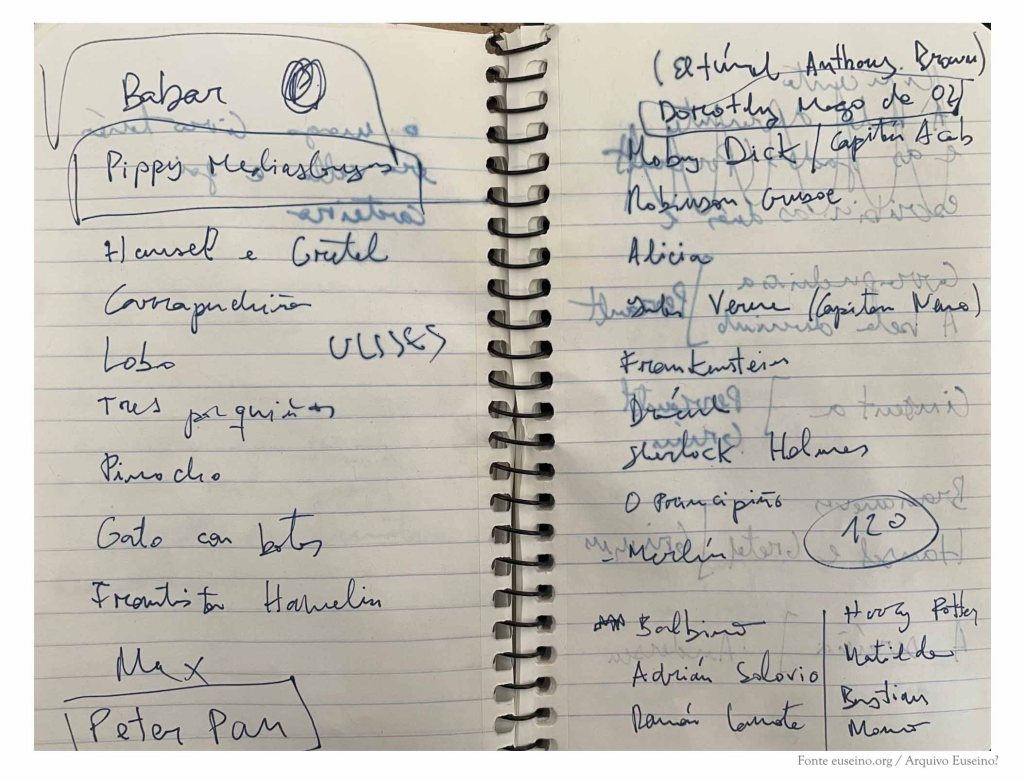 Babar
Pippy Mediaslargas
Hansel e Gretel
Carrapuchiña
Lobo
ULISSES
Tres porquiños
Pinocho
Gato con botas
Frautista Hamelin
Max
Peter Pan
(El túnel Anthony Brown)
Dorothy Mago de OZ
Moby Dick / Capitán Acab
Robinson Crusoe
Alicia
Jules Verne (Capitan Nemo)
Frankenstein
Drácula
Sherlock Holmes
O Principiño
120
- Merlín
Balbino
Adrián Solovio
Ramón Lamote
Harry Potter
Matilda
Bastian
Momo
Fonte euseino.org / Arquivo Euseino?